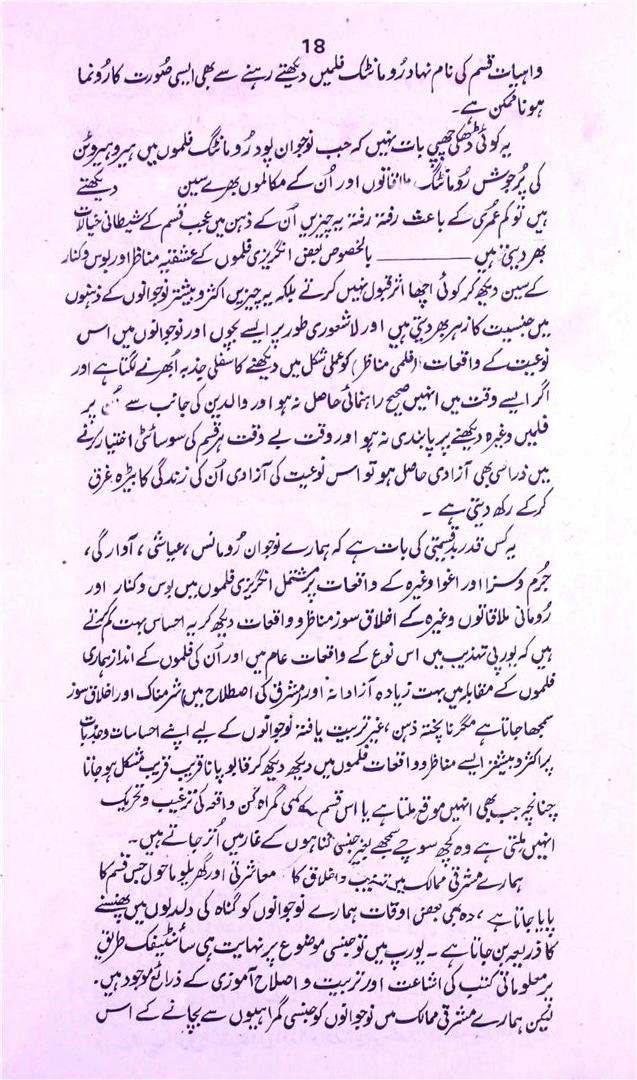 18
واہیات قسم کی نام نہاد رُومانٹک فلمیں دیکھتے رہنے سے بھی ایسی صُورت کا رُونما
ہونا ممکن ہے۔
یہ کوئی ڈھکی چھپی بات نہیں کہ جب نوجوان پود رُومانٹک فلموں میں ہیرو ہیروئن
کی پُرجوش رُومانٹک ملاقاتوں اور اُن کے مکالموں بھرے سین دیکھتے
ہیں تو کم عمری کے باعث رفتہ رفتہ یہ چیزیں اُن کے ذہن میں عجیب قسم کے شیطانی خیالات
بھر دیتی ہیں ——— بالخصوص بعض انگریزی فلموں کے عشقیہ مناظر اور بوس و کنار
کے سین دیکھ کر کوئی اچھا اثر قبول نہیں کرتے بلکہ یہ چیزیں اکثر و بیشتر نوجوانوں کے ذہنوں
میں جنسیت کا زہر بھر دیتی ہیں اور لاشعوری طور پر ایسے بچوں اور نوجوانوں میں اس
نوعیت کے واقعات (فلمی مناظر) کو عملی شکل میں دیکھنے کا سفلی جذبہ اُبھرنے لگتا ہے اور
اگر ایسے وقت میں انہیں صحیح راہنمائی حاصل نہ ہو اور والدین کی جانب سے پر
فلمیں وغیرہ دیکھنے پر پابندی نہ ہو اور وقت بے وقت ہر قسم کی سوسائٹی اختیار کرنے
میں ذرا سی بھی آزادی حاصل ہو تو اس نوعیت کی آزادی اُن کی زندگی کا بیڑہ غرق
کر کے رکھ دیتی ہے ۔
یہ کس قدر بدقسمتی کی بات ہے کہ ہمارے نوجوان رُومانس، عیاشی، آوارگی،
جُرم و سزا اور اغوا وغیرہ کے واقعات پر مشتمل انگریزی فلموں میں بوس و کنار اور
رُومانی ملاقاتوں وغیرہ کے اخلاق سوز مناظر و واقعات دیکھ کر یہ احساس بہت کم کرتے
ہیں کہ یورپی تہذیب میں اس نوع کے واقعات عام ہیں اور اُن کی فلموں کے انداز ہماری
فلموں کے مقابلہ میں بہت زیادہ آزادانہ اور (مشرق کی اصطلاح میں) شرمناک اور اخلاق سوز
سمجھا جاتا ہے مگر ناپختہ ذہن، غیر تربیت یافتہ نوجوانوں کے لیے اپنے احساسات و جذبات
پر اکثر و بیشتر ایسے مناظر و واقعات فلموں میں دیکھ دیکھ کر قابو پانا قریب قریب مشکل ہو جاتا
چنانچہ جب بھی انہیں موقع ملتا ہے یا اس قسم کے کسی گمراہ کُن واقعہ کی ترغیب و تحریک
انہیں ملتی ہے وہ کچھ سوچے سمجھے بغیر جنسی گناہوں کے غار میں اُتر جاتے ہیں۔
ہمارے مشرقی ممالک میں تہذیب و اخلاق کا معاشرتی اور گھریلو ماحول جس قسم کا
پایا جاتا ہے، وہ بھی بعض اوقات ہمارے نوجوانوں کو گناہ کی دلدلوں میں پھنسنے
کا ذریعہ بن جاتا ہے ۔ یورپ میں تو جنسی موضوع پر نہایت ہی سائنٹیفک طریق
پر معلوماتی کتب کی اشاعت اور تربیت و اصلاح آموزی کے ذرائع موجود ہیں۔
لیکن ہمارے مشرقی ممالک میں نوجوانوں کو جنسی گمراہیوں سے بچانے کے اس